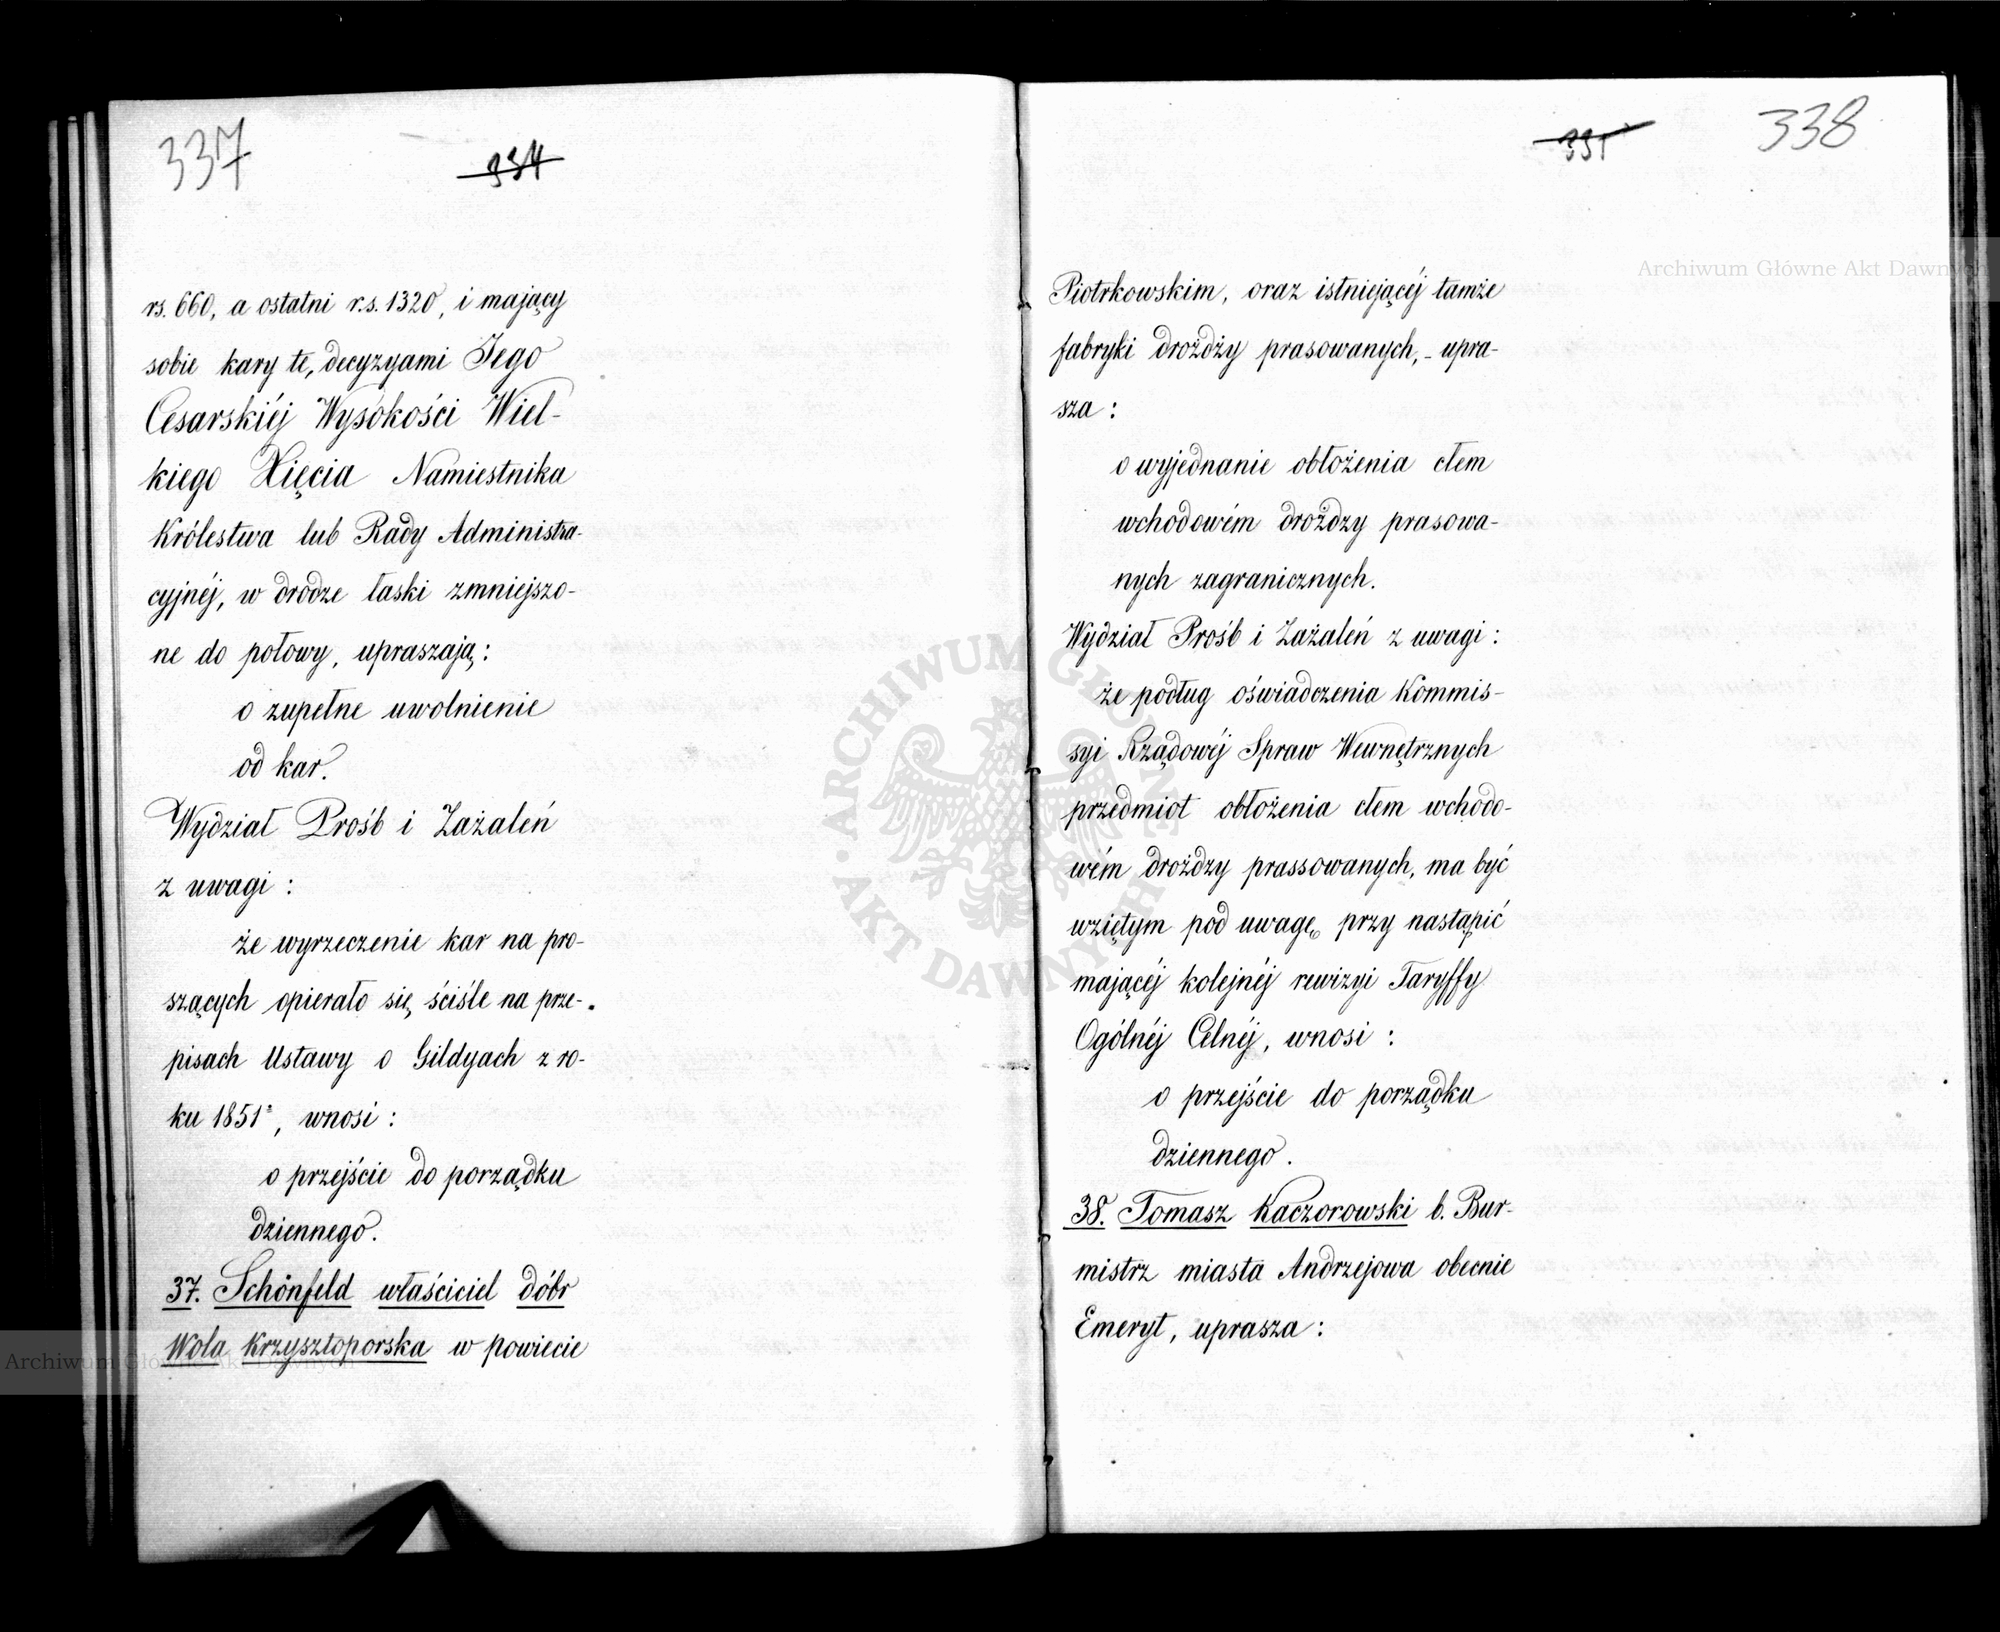 337
334
rs. 660, a ostatni r.s. 1320, i mający
sobie kary te, decyzyami Jego
Cesarskiéj Wysokości Wiel-
kiego Xięcia Namiestnika
Królestwa lub Rady Administra-
cyjnéj, w drodze łaski zmniejszo-
ne do połowy, upraszają:
o zupełne uwolnienie
od kar.
Wydział Prośb i Zażaleń
z uwagi:
że wyrzeczenie kar na pro-
szących opierało się ściśle na prze-
pisach Ustawy o Gildyach z ro-
ku 1851, wnosi:
o przejście do porządku
dziennego.
37. Schönfeld właściciel dóbr
Wola Krzysztoporska w powiecie
335
338
Piotrkowskim, oraz istniejącéj tamże
fabryki drożdży prasowanych, - upra-
sza:
o wyjednanie obłożenia cłem
wchodowém drożdzy prasowa-
nych zagranicznych.
Wydział Prośb i Zażaleń z uwagi:
że podług oświadczenia Kommis-
syi Rządowéj Spraw Wewnętrznych
przedmiot obłożenia cłem wchodo-
wém drożdzy prassowanych, ma być
wziętym pod uwagę przy nastąpić
mającéj kolejnéj rewizyi Taryffy
Ogólnéj Celnéj, wnosi:
o przejście do porządku
dziennego.
38. Tomasz Kaczorowski b. Bur-
mistrz miasta Andrzejowa obecnie
Emeryt, uprasza:
Archiwum Główne Akt Dawnych
Archiwum Główne Akt Dawnych
ARCHIWUM GŁÓWNE AKT DAWNYCH